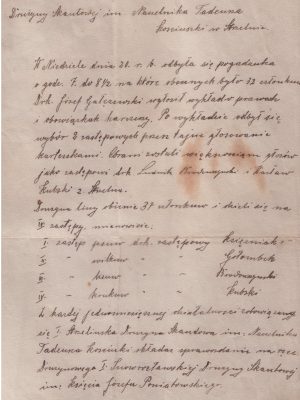 Drużyny Skautowej im. Naczelnika Tadeusza
Kościuszki w Strzelnie
W Niedzielę dnia 20. r. b. odbyła się pogadanka
o godz. 7. do 8½ na które obecnych było 33 członków
Dch. Józef Gałczewski wygłosił wykład o prawach
i obowiązkach harcerzy. Po wykładzie odbył się
wybór 2 zastępowych przez tajne głosowanie
kartczkami. Obrani zostali większością głosów
jako zastępowi dch. Ludwik i Wacław
Kubski z Strzelna.
Drużyna liczy obecnie 37 członków i dzieli się na
IV zastępy mianowicie:
I zastęp dch. zastępowy Księżniak
II " wilków " " Gołombek
III " " "
IV " kruków " " Kubski
Z każdej jednomiesięcznej działalności zobowiązuje
się I. Strzelińska Drużyna Skautowa im. Naczelnika
Tadeusza Kościuszki składać sprawozdanie na ręce
Drużynowego I Inowrocławskiej Drużyny Skautowej
im. Księcia Józefa Poniatowskiego.